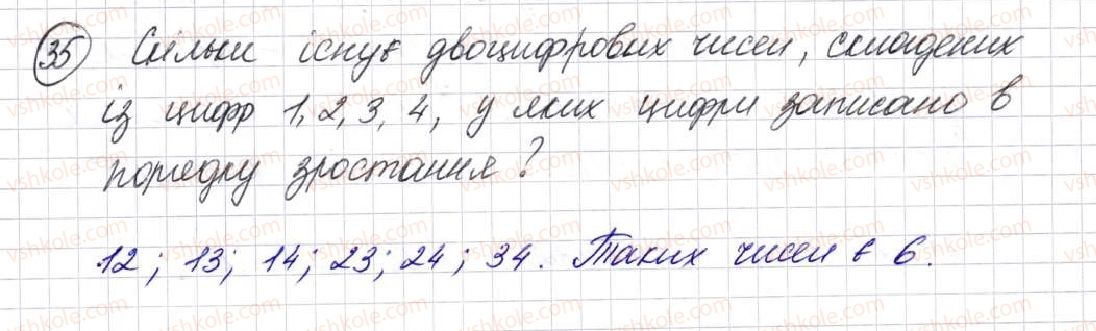 35 Скільки існує двоцифрових чисел, складених
із цифр 1, 2, 3, 4, у яких цифри записано в
порядку зростання?
12; 13; 14; 23; 24; 34. Таких чисел є 6.